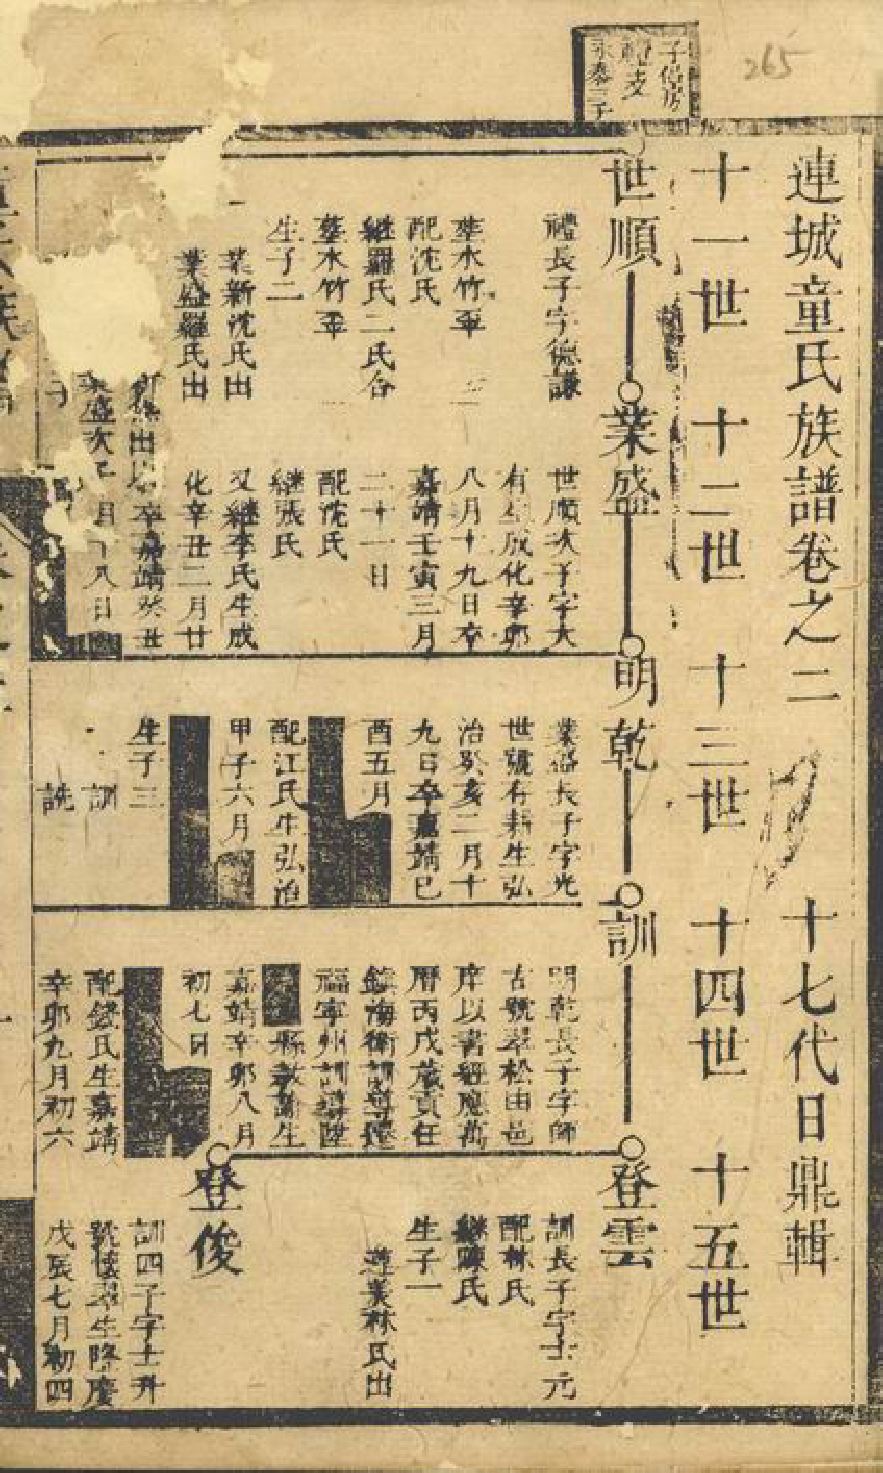 265
子
支
永泰三子
連城童氏族譜卷之二
十七代日鼎輯
十一世
十二世
十三世
十四世
十五世
世順
禮長子字德謙
葬水竹
配沈氏
繼羅氏二氏合
葬水竹
生子二
業新沈氏出
業盛羅氏出
業盛
世順次子字大
有生成化辛卯
八月十九日卒
嘉靖壬寅三月
二十一日
配沈氏
繼張氏
又繼李氏生成
化辛丑二月廿
卒嘉靖癸丑
月十八日
業盛次子
明乾
業盛長子字光
世號有耕生弘
治癸亥二月十
九日卒嘉靖巳
酉五月
配江氏生弘治
甲子六月
生子三
訓
訓
明乾長子字師
古號翠松由邑
庠以書經應萬
曆丙戌歲貢任
鎮海衛訓導陞
福寧州訓導陞
縣教諭生
嘉靖辛卯八月
初七日
配錢氏生嘉靖
辛卯九月初六
登雲
訓長子字士元
配林氏
繼陳氏
生子一
林氏出
登俊
訓四子字士升
生隆慶
戊辰七月初四